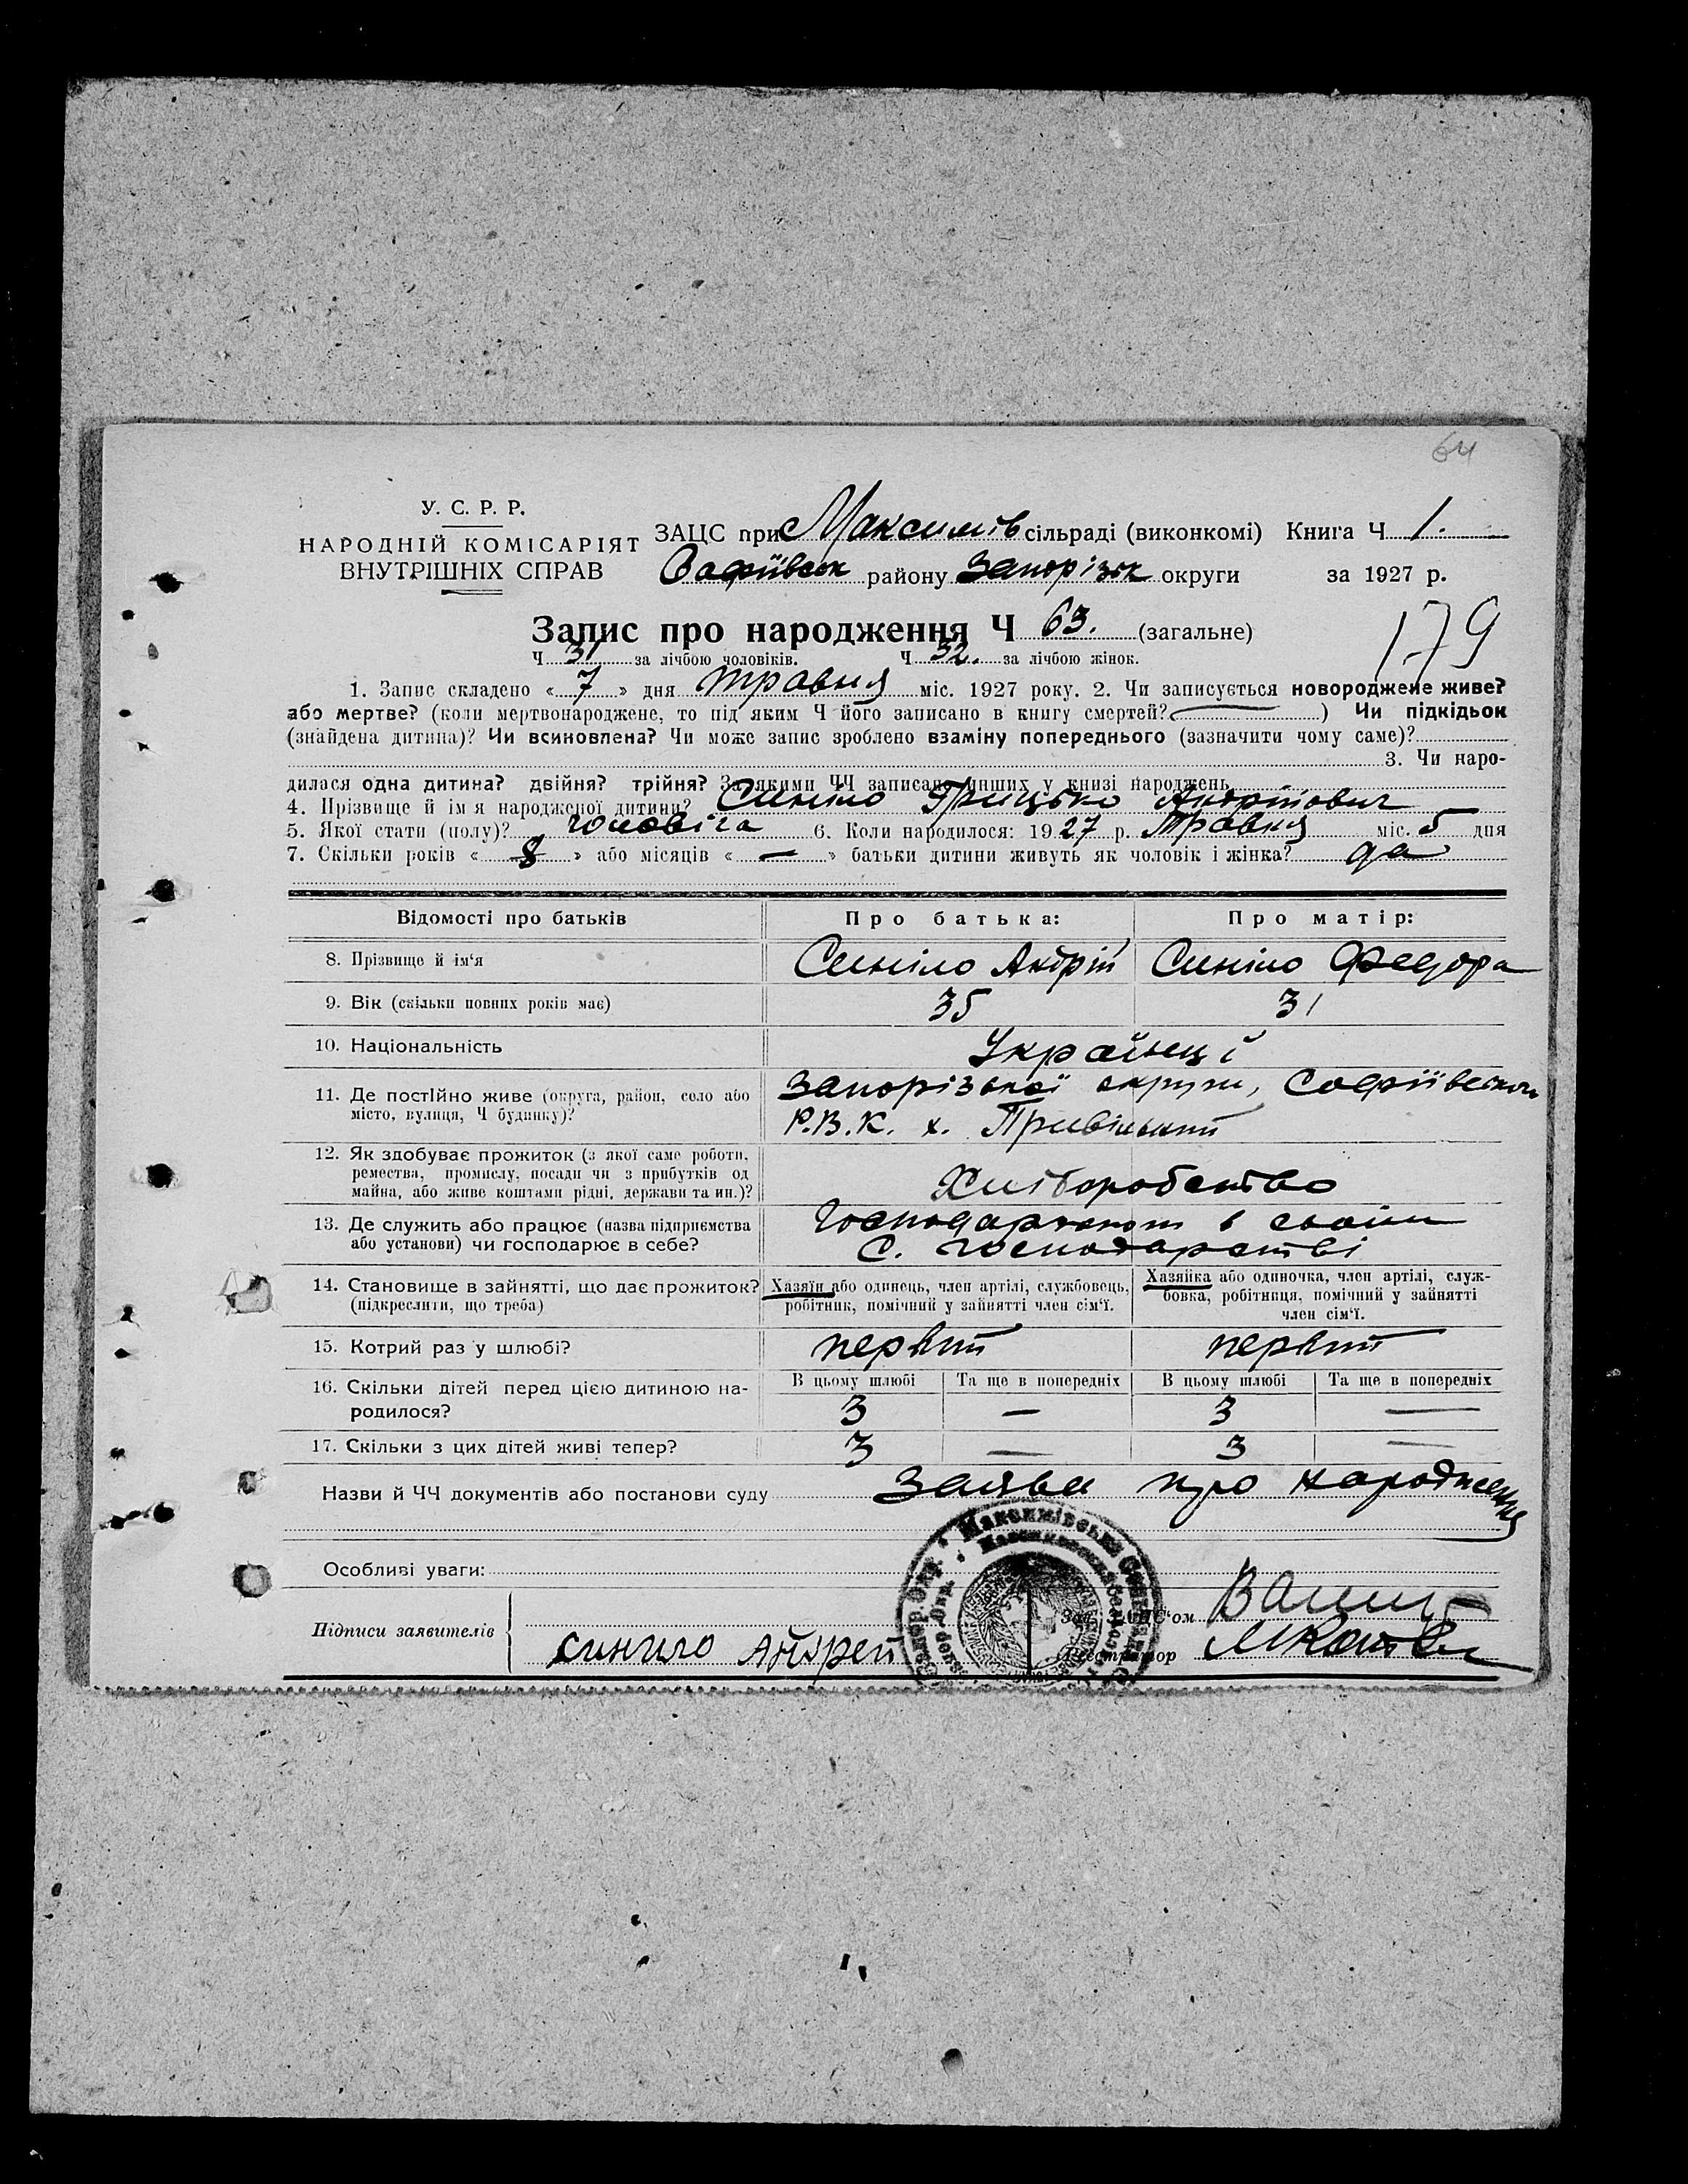 64
У. С. Р. Р.
НАРОДНІЙ КОМІСАРІЯТ
ВНУТРІШНІХ СПРАВ
ЗАЦС при Максимів сільраді (виконкомі) Книга Ч 1.
Софіївськ району Запорізьк округи за 1927 р.
Запис про народження Ч 63. (загальне)
179
Ч 31 за лічбою чоловіків. Ч 32. за лічбою жінок.
1. Запис складено « 7 » дня травня міс. 1927 року. 2. Чи записується новороджене живе?
або мертве? (коли мертвонароджене, то під яким Ч його записано в книгу смертей? ) Чи підкідьок
(знайдена дитина)? Чи всиновлена? Чи може запис зроблено взаміну попереднього (зазначити чому саме)?
3. Чи наро-
дилася одна дитина? двійня? трійня? За якими ЧЧ записано инших у книзі народжень
4. Прізвище й ім'я народженої дитини? Синіло Грицько Андрійович
5. Якої стати (полу)? чоловіча 6. Коли народилося: 1927 р. Травня міс. 5 дня
7. Скільки років « 8 » або місяців « — » батьки дитини живуть як чоловік і жінка? да
Відомості про батьків Про батька: Про матір:
8. Прізвище й ім'я Синіло Андрій Синіло Федора
9. Вік (скільки повних років має) 35 31
10. Національність Українці
11. Де постійно живе (округа, район, село або
місто, вулиця, Ч будинку)?
Запорізької округи, Софіївськоі
Р.В.К. х. Привільний
12. Як здобуває прожиток (з якої саме роботи,
ремества, промислу, посади чи з прибутків од
майна, або живе коштами рідні, держави та ин.)?
Хліборобство
13. Де служить або працює (назва підприємства
або установи) чи господарює в себе?
в своїм
С. господарстві
14. Становище в зайнятті, що дає прожиток?
(підкреслити, що треба)
Хазяїн або одинець, член артілі, службовець,
робітник, помічний у зайнятті член сім'ї.
Хазяйка або одиночка, член артілі, служ-
бовка, робітниця, помічний у зайнятті
член сім'ї.
15. Котрий раз у шлюбі? первий первий
16. Скільки дітей перед цією дитиною на-
родилося?
В цьому шлюбі Та ще в попередніх В цьому шлюбі Та ще в попередніх
3 — 3 —
17. Скільки з цих дітей живі тепер? 3 — 3 —
Назви й ЧЧ документів або постанови суду Заява про народження
Особливі уваги:
Підписи заявителів
Синило Андрей
Зав. ЗАЦС'ом
Реєстратор
Максимівська